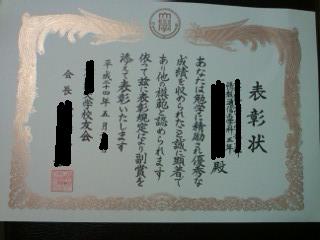 表彰状
情報通信工学科三年
殿
あなたは勉学に精励され優秀な
成績を収められたことは誠に顕著で
あり他の模範と認められます
依って茲に表彰規定により副賞を
添えて表彰いたします
平成二十四年五月
大学校友会
会長